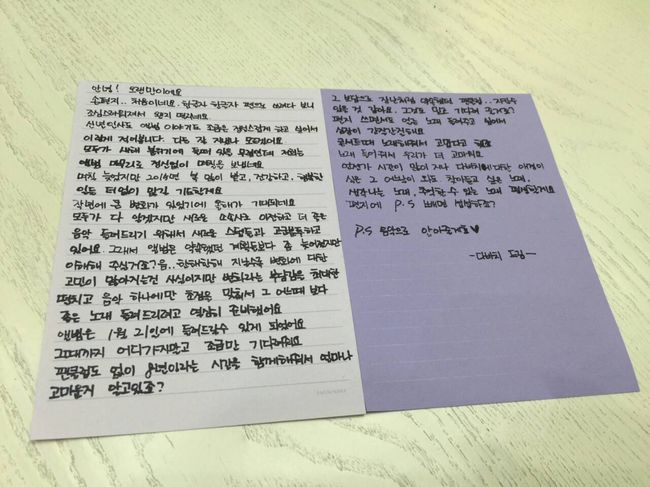 안녕! 오랜만이에요
손편지.. 처음이네요. 한글자 한글자 펜으로 쓰려다 보니
조심스러워져서 왠지 떨리네요
신년인사도 앨범 이야기도 조금은 정성스럽게 하고 싶어서
이렇게 적어봅니다. 다들 잘 지내나 모르겠어요
모두가 새해 분위기에 들떠 있을 무렵인데 저희는
앨범 마무리로 정신없이 며칠을 보냈네요
며칠 늦었지만 2016년 복 많이 받고, 건강하고, 행복한
일들 더 없이 많길 기도할게요
작년에 큰 변화가 있었기에 올해가 기대되네요
모두가 다 알겠지만 새로운 소속사로 이전하고 더 좋은
음악 들려드리기 위해서 새로운 스텝들과 고군분투하고
있어요. 그래서 앨범은 약속했던 계획들보다 좀 늦어졌지만
이해해 주실거죠? 음.. 한해한해 지날수록 변화에 대한
고민이 많아지는건 사실이지만 변화라는 부담감을 최대한
떨치고 음악 하나에만 초점을 맞춰서 그 어느때 보다
좋은 노래 들려드리려고 열심히 준비했어요
앨범은 1월 21일에 들려드릴수 있게 되었어요
그때까지 어디가지말고 조금만 기다려줘요
팬클럽도 없이 8년이라는 시간을 함께해줘서 얼마나
고마운지 알고있죠?
그 보답으로 장난처럼 약속했던 팬클럽.. 지킬수
있을 것 같아요. 그것도 믿고 기다려 줄거죠?
편지 쓰면서도 얼른 노래 들려주고 싶어서
심장이 간질간질해요
노래해줘서 고맙다고 해요
노래 들어줘서 우리가 더 고마워요
시간이 많이 지나 다비치 대한 얘기에
싶은 그 어느날 최고 찾아듣고 싶은 노래,
생각나는 노래, 추억할 수 있는 노래
편지에 P.S 빠지면 섭섭하죠?
P.S 음악으로 안아줄게요♥
-다비치 드림-